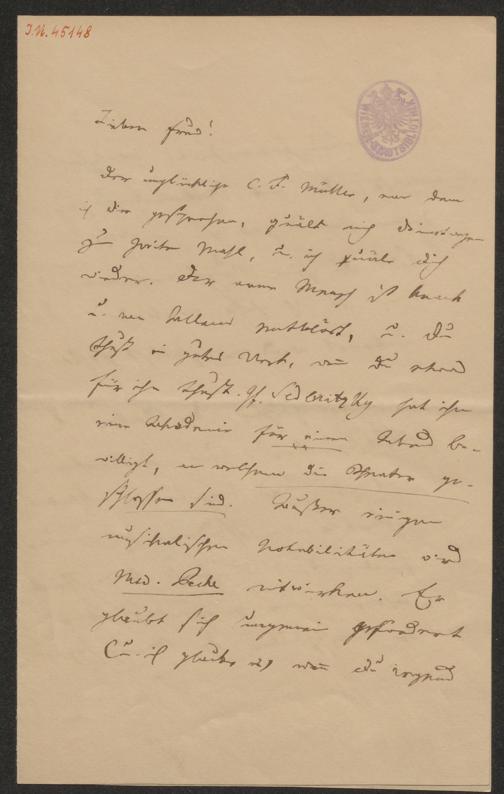 J.N. 45148
WIENER STADTBIBLIOTHEK
Lieber Freund!
Der unglückliche C. F. Müller, von dem
ich dir gesprochen, quält mich
zum zweiten Mahl, u. ich quäle dich
wieder. Der arme Mensch ist krank
u. von allem entblößt, u. du
thust ein gutes Werk, wenn du etwas
für ihn thust. Gf. Sedlnitzky hat ihm
eine Akademie für einen Abend be-
willigt, an welchem die Theater ge-
schlossen sind. Außer einigen
musikalischen Notabilitäten wird
Mad. mitwirken. Er
glaubt sich ungemein gefördert
(u. ich glaube es) wenn du irgend